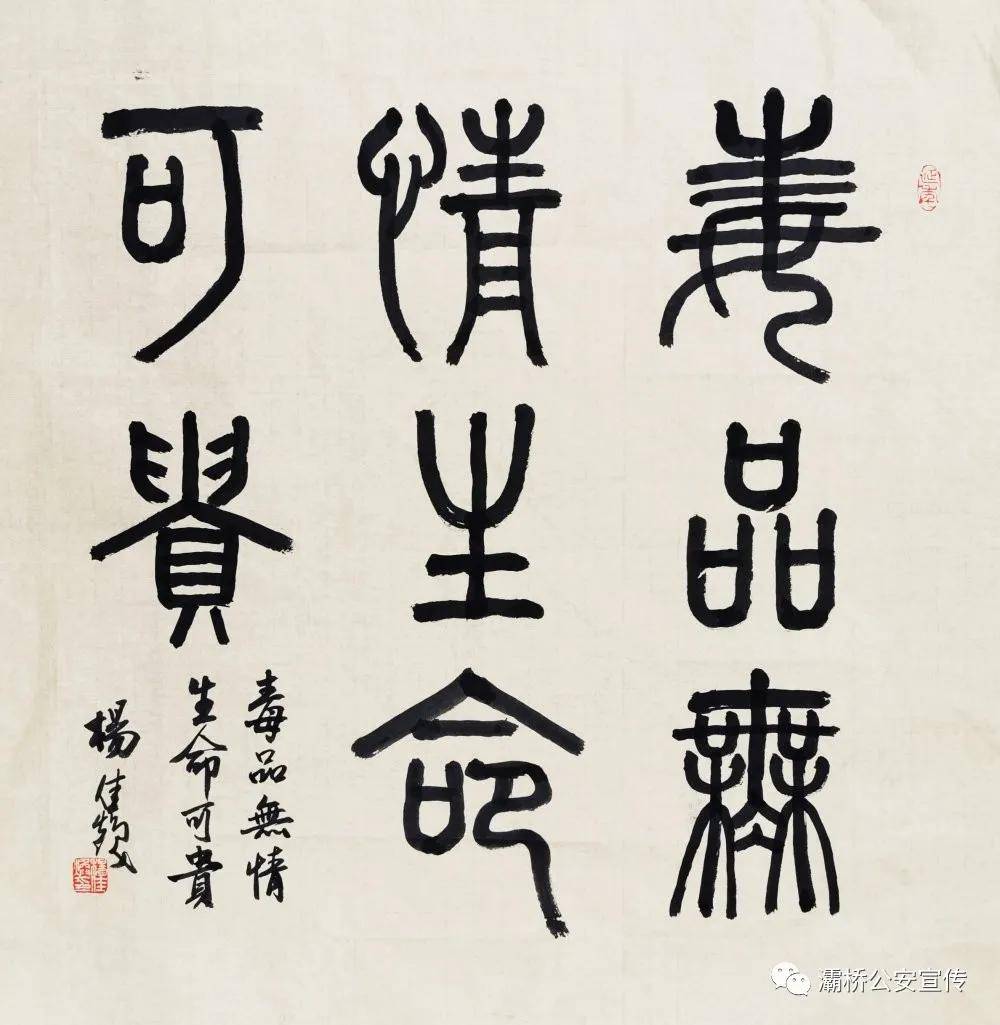 毒品無
情生命
可貴
毒品無情
生命可貴
楊佳
灞桥公安宣传